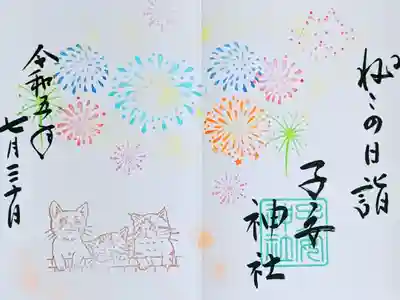 ねこの日詣
子安
神社
子安神社
令和五年
七月三十日